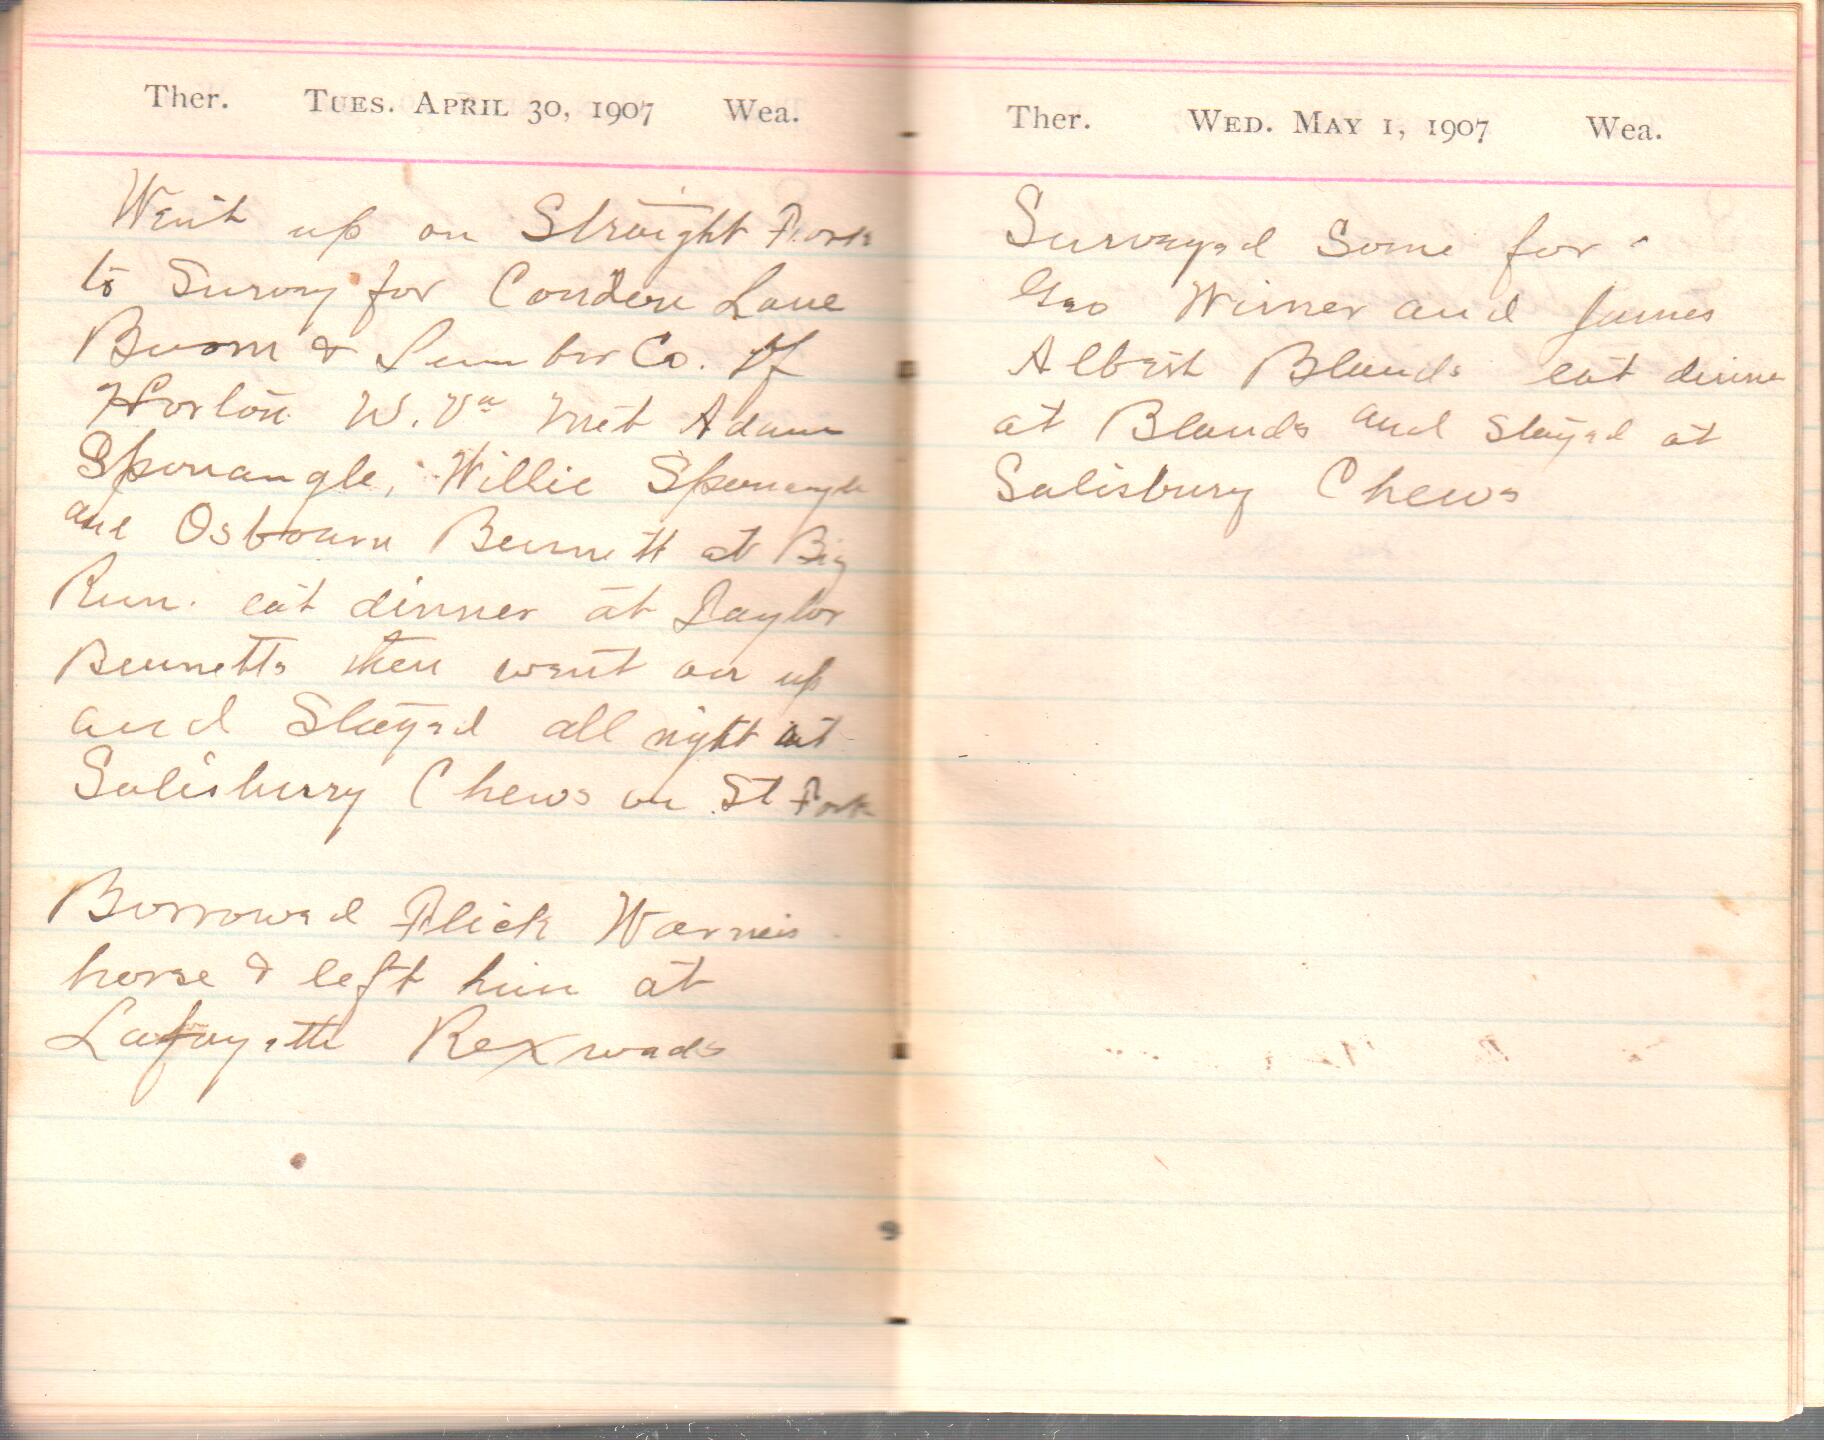 Ther. TUES. APRIL 30, 1907 Wea.
Went up on Straight Fork
to Survey for Condon Lane
Boom & Lumber Co. of
Horton W. Va Met Adam
Sponaugle, Willie Sponaugle
and Osbourn Bennett at Big
Run. eat dinner at Taylor
Bennetts then went on up
and Stayed all night at
Salisbury Chews on St Fork
Borrowed Flick Warners
horse & left him at
Lafayette Rexwads
Ther. WED. MAY 1, 1907 Wea.
Surveyed Some for
Geo Wimer and James
Albert Blands eat dinner
at Blands and Stayed at
Salisbury Chews